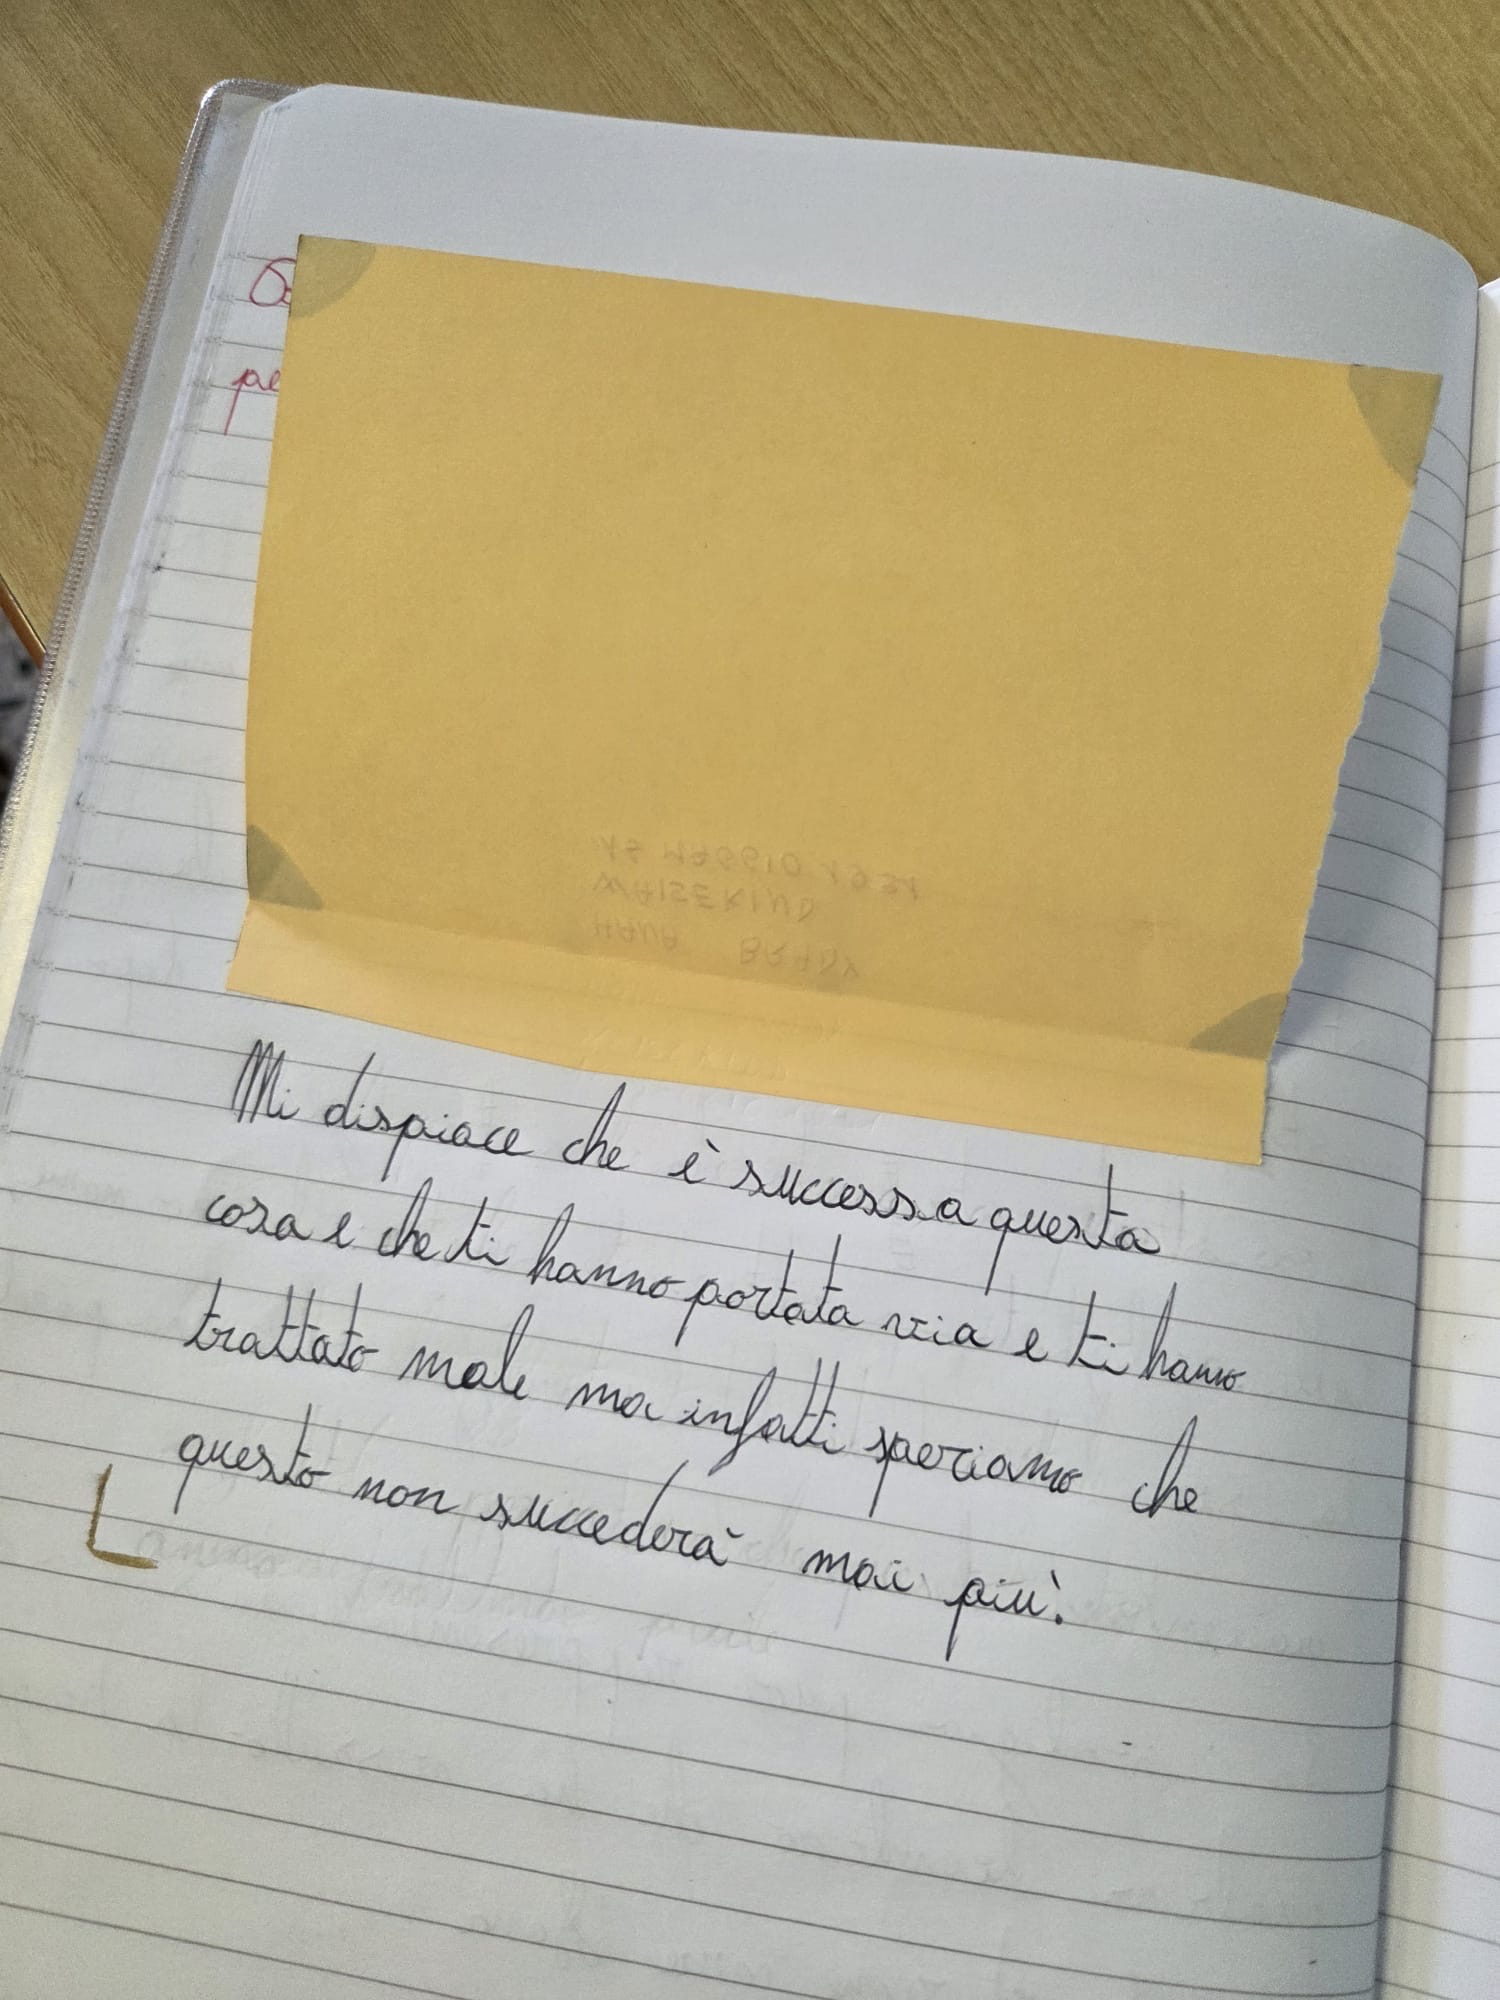 HANA BRADY
WAISEKIND
Mi dispiace che è successa questa
cosa e che ti hanno portata via e ti hanno
trattato male ma infatti speriamo che
questo non succederà mai più.